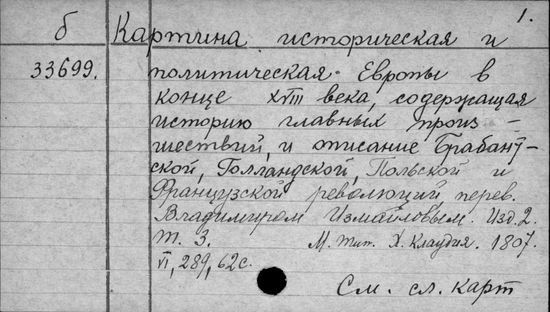 1.
б Картина историческая и
33699. политическая Европы в
конце XVIII века, содержащая
историю главных произ-
шествий, и описание Брабант-
ской, Голландской, Польской и
Французской революций перев.
Владимиром Измайловым. Изд. 2.
Т. 3. М. тип. Х. Клаудия. 1807.
VI, 289, 62 с.
См. сл. карт